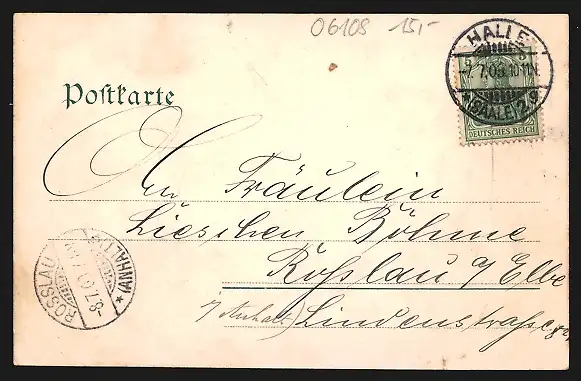 06108 15,-
HALLE
*(SAALE)2
DEUTSCHES REICH
Postkarte
An Fräulein
Lieschen Böhme
Roßlau a/Elbe
i/Anhalt) Lindenstraße
ROSSLAU
*(ANHALT)*